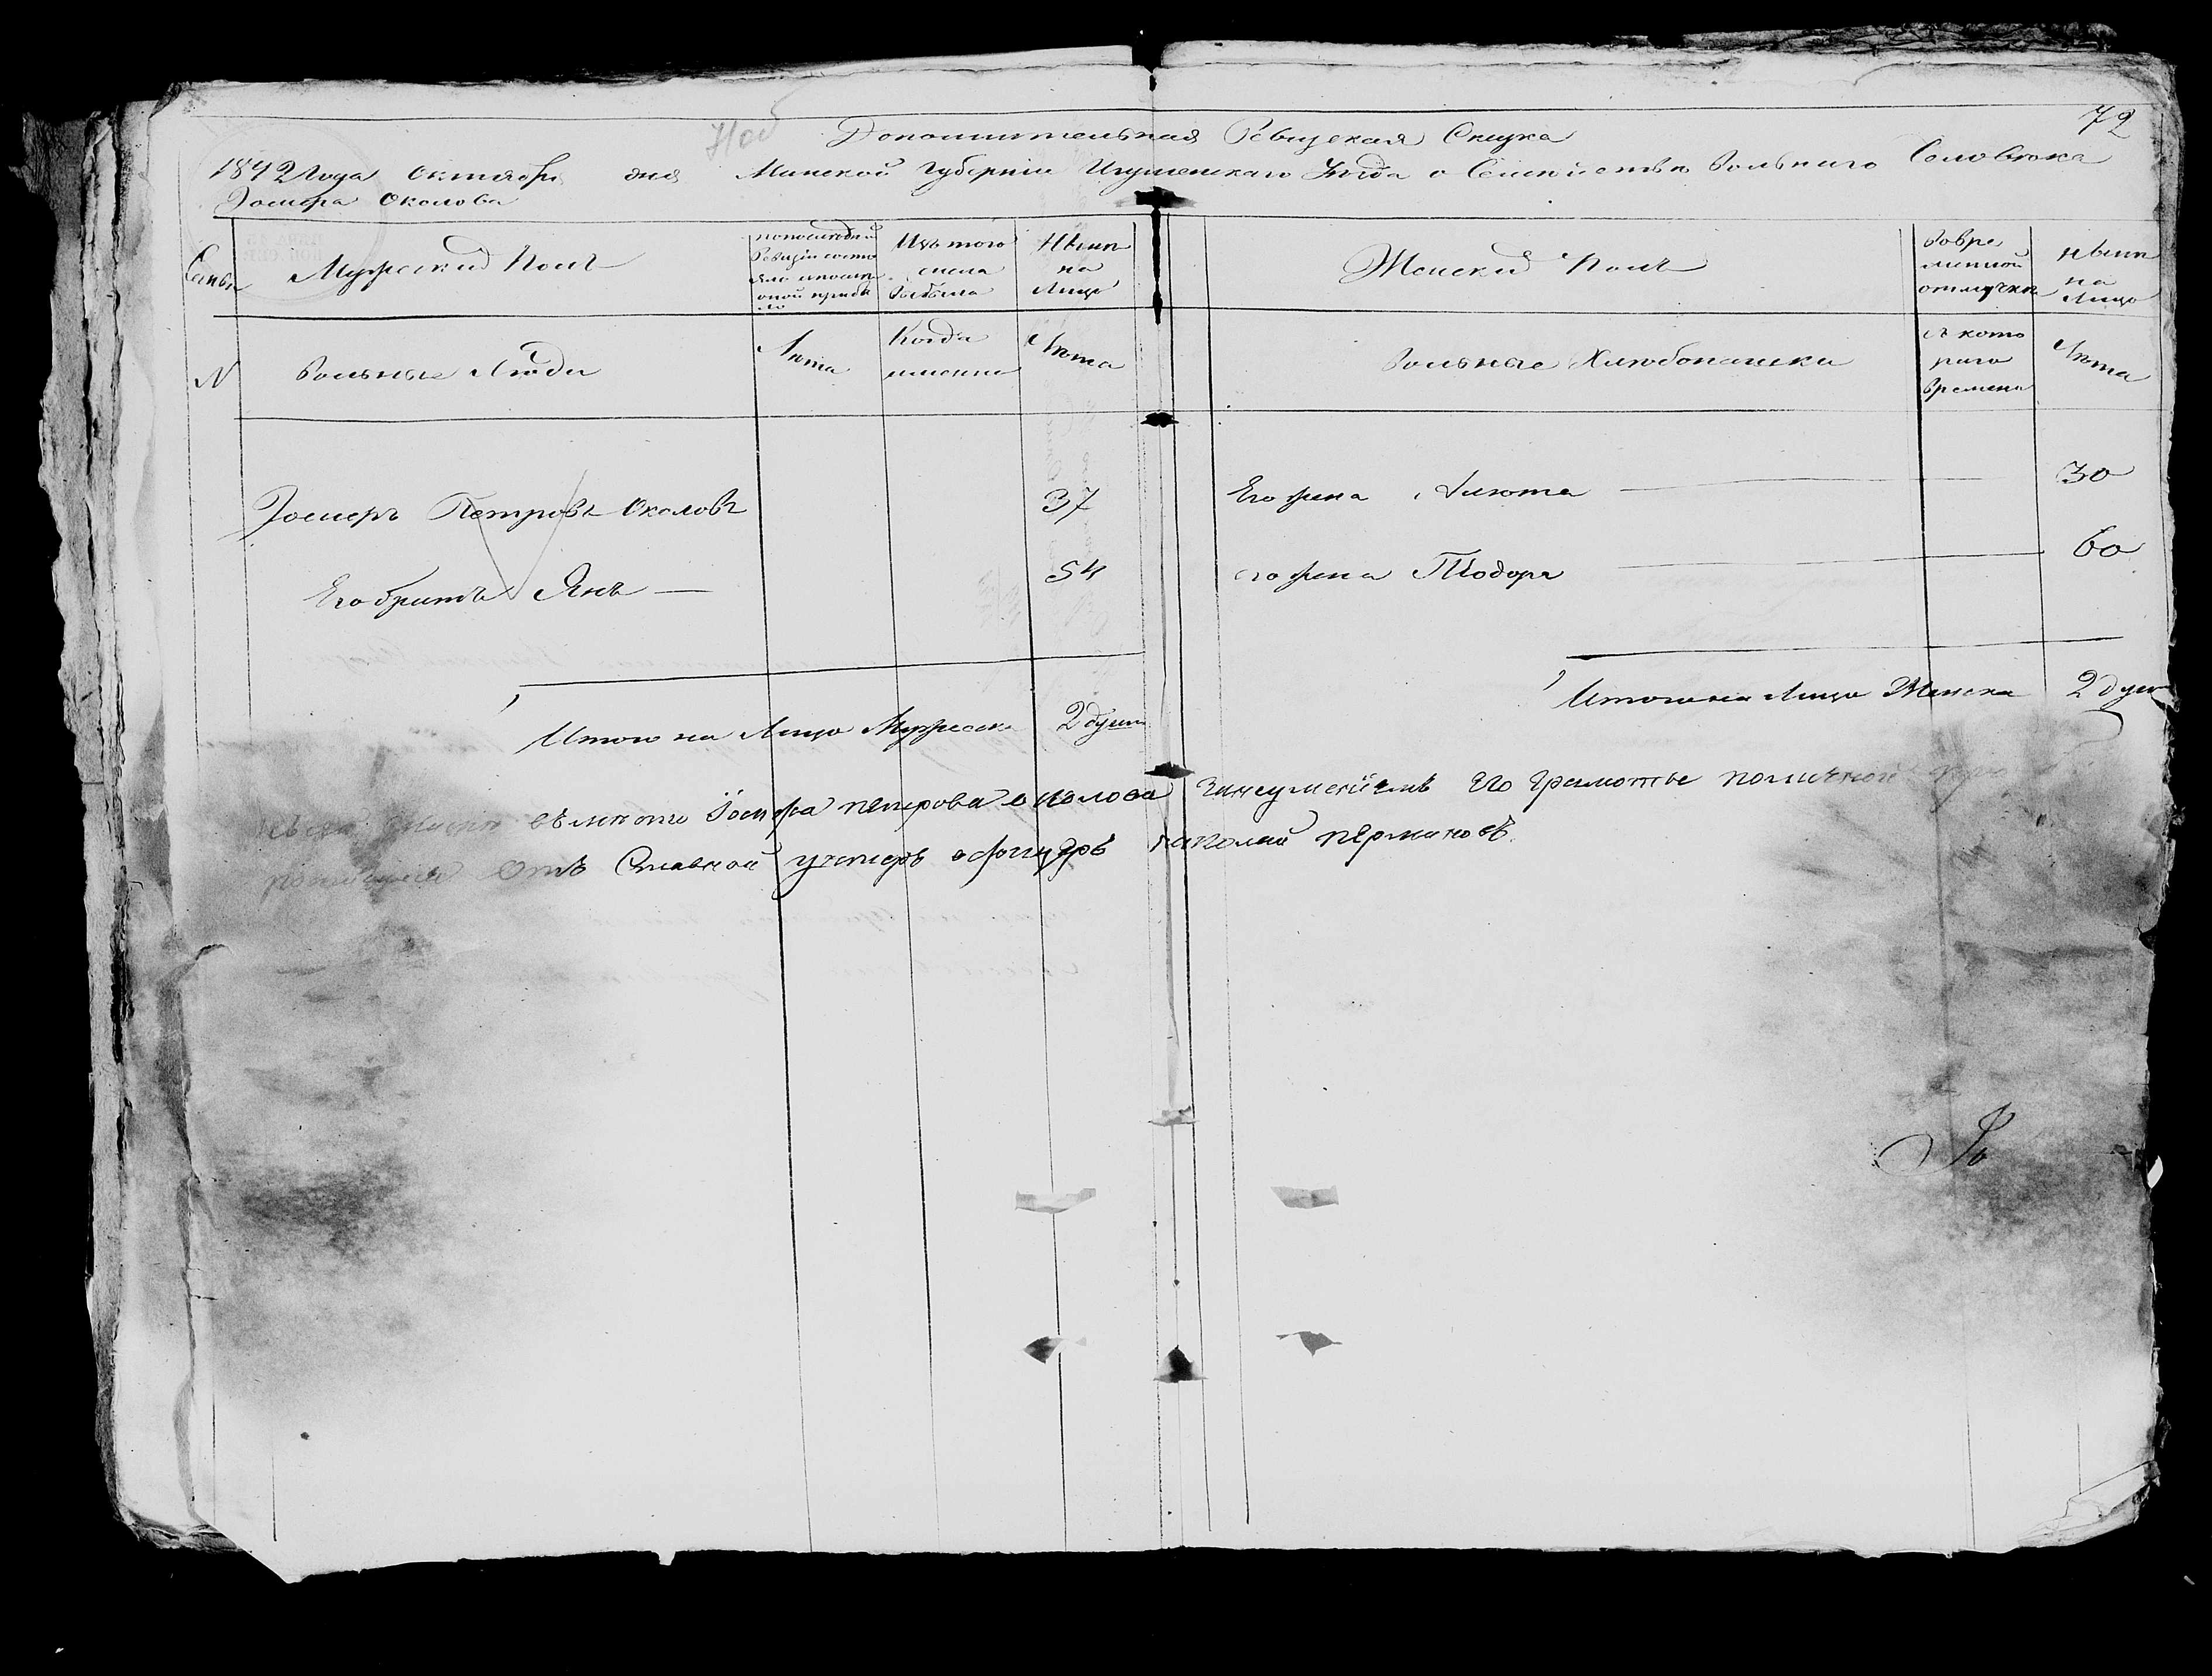 72
Дополнительная Ревизская Скизка
1842 Года Октября дня Минской Губернии Игуменскаго Уѣзда о Семействѣ Вольнаго Головека
Іосифа Околова
Мужеский Полъ
по последней Ревизіи состояло и после оной прибыло
Изъ того числа выбыло
Нынѣ на Лицо
Женский Полъ
Во временной отлучкѣ
Нынѣ на Лицо
N
Вольные Люди
Лѣта
Когда именно
Лѣта
Вольные Хлюбопашки
съ кото раго времени
Лѣта
Іосифъ Петровъ Околовъ 37
Его жена Анюта 30
Его братъ Янъ 54
его жена Тодора 60
Итого на Лицо Мужеска 2 души
Итого на Лицо Женска 2 души
Іосифа петрова околова Его грамотые
Отъ Ставной унтеръ офицеръ николай